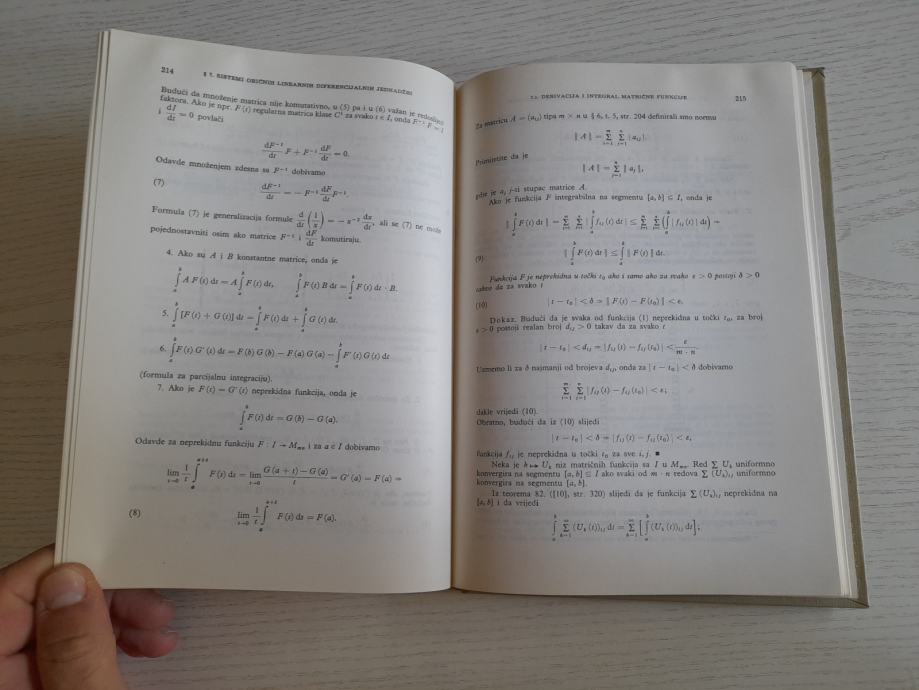 214
§ 7. SISTEMI OBIČNIH LINEARNIH DIFERENCIJALNIH JEDNADŽBI
Budući da množenje matrica nije komutativno, u (5) pa i u (6) važan je redoslijed
faktora. Ako je npr. F (t) regularna matrica klase C¹ za svako t ∈ I, onda F⁻¹ F = I
i dI/dt = 0 povlači
dF⁻¹/dt F + F⁻¹ dF/dt = 0.
Odavde množenjem zdesna sa F⁻¹ dobivamo
(7) dF⁻¹/dt = − F⁻¹ dF/dt F⁻¹.
Formula (7) je generalizacija formule d/dt (1/x) = − x⁻² dx/dt, ali se (7) ne može
pojednostavniti osim ako matrice F⁻¹ i dF/dt komutiraju.
4. Ako su A i B konstantne matrice, onda je
∫ₐᵇ A F (t) dt = A ∫ₐᵇ F (t) dt, ∫ₐᵇ F (t) B dt = ∫ₐᵇ F (t) dt · B.
5. ∫ₐᵇ [F (t) + G (t)] dt = ∫ₐᵇ F (t) dt + ∫ₐᵇ G (t) dt.
6. ∫ₐᵇ F (t) G′ (t) dt = F (b) G (b) − F (a) G (a) − ∫ₐᵇ F′ (t) G (t) dt
(formula za parcijalnu integraciju).
7. Ako je F (t) = G′ (t) neprekidna funkcija, onda je
∫ₐᵇ F (t) dt = G (b) − G (a).
Odavde za neprekidnu funkciju F : I → Mₘₙ i za a ∈ I dobivamo
lim_{t→0} 1/t ∫ₐᵃ⁺ᵗ F (s) ds = lim_{t→0} (G (a + t) − G (a))/t = G′ (a) = F (a) ⇒
(8) lim_{t→0} 1/t ∫ₐᵃ⁺ᵗ F (s) ds = F (a).
7.1. DERIVACIJA I INTEGRAL MATRIČNE FUNKCIJE 215
Za matricu A = (aᵢⱼ) tipa m × n u § 6, t. 5, str. 204 definirali smo normu
‖ A ‖ = Σᵢ₌₁ᵐ Σⱼ₌₁ⁿ | aᵢⱼ |.
Primijetite da je
‖ A ‖ = Σⱼ₌₁ⁿ ‖ aⱼ ‖,
gdje je aⱼ j-ti stupac matrice A.
Ako je funkcija F integrabilna na segmentu [a, b] ⊆ I, onda je
‖ ∫ₐᵇ F (t) dt ‖ = Σᵢ₌₁ᵐ Σⱼ₌₁ⁿ | ∫ₐᵇ fᵢⱼ (t) dt | ≤ Σᵢ₌₁ᵐ Σⱼ₌₁ⁿ (∫ₐᵇ | fᵢⱼ (t) | dt) ⇒
(9) ‖ ∫ₐᵇ F (t) dt ‖ ≤ ∫ₐᵇ ‖ F (t) ‖ dt.
Funkcija F je neprekidna u točki t₀ ako i samo ako za svako ε > 0 postoji δ > 0
takvo da za svako t
(10) | t − t₀ | < δ ⇒ ‖ F (t) − F (t₀) ‖ < ε.
Dokaz. Budući da je svaka od funkcija (1) neprekidna u točki t₀, za broj
ε > 0 postoji realan broj dᵢⱼ > 0 takav da za svako t
| t − t₀ | < dᵢⱼ ⇒ | fᵢⱼ (t) − fᵢⱼ (t₀) | < ε/(m · n).
Uzmemo li za δ najmanji od brojeva dᵢⱼ, onda za | t − t₀ | < δ dobivamo
Σᵢ₌₁ᵐ Σⱼ₌₁ⁿ | fᵢⱼ (t) − fᵢⱼ (t₀) | < ε,
dakle vrijedi (10).
Obratno, budući da iz (10) slijedi
| t − t₀ | < δ ⇒ | fᵢⱼ (t) − fᵢⱼ (t₀) | < ε,
funkcija fᵢⱼ je neprekidna u točki t₀ za sve i, j. ■
Neka je k ↦ Uₖ niz matričnih funkcija sa I u Mₘₙ. Red Σ Uₖ uniformno
konvergira na segmentu [a, b] ⊆ I ako svaki od m · n redova Σ (Uₖ)ᵢⱼ uniformno
konvergira na segmentu [a, b].
Iz teorema 82. ([10], str. 320) slijedi da je funkcija Σ (Uₖ)ᵢⱼ neprekidna na
[a, b] i da vrijedi
∫ₐᵇ Σₖ₌₁^∞ (Uₖ (t))ᵢⱼ dt = Σₖ₌₁^∞ [∫ₐᵇ (Uₖ (t))ᵢⱼ dt];